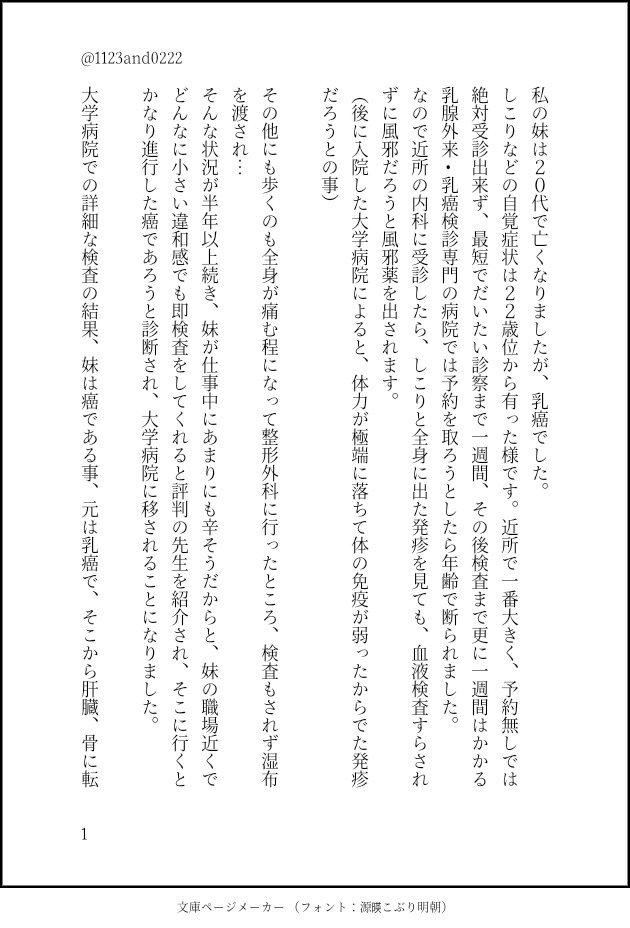 @1123and0222
私の妹は２０代で亡くなりましたが、乳癌でした。
しこりなどの自覚症状は２２歳位から有った様です。近所で一番大きく、予約無しでは
絶対受診出来ず、最短でだいたい診察まで一週間、その後検査まで更に一週間はかかる
乳腺外来・乳癌検診専門の病院では予約を取ろうとしたら年齢で断られました。
なので近所の内科に受診したら、しこりと全身に出た発疹を見ても、血液検査すらされ
ずに風邪だろうと風邪薬を出されます。
（後に入院した大学病院によると、体力が極端に落ちて体の免疫が弱ったからでた発疹
だろうとの事）
その他にも歩くのも全身が痛む程になって整形外科に行ったところ、検査もされず湿布
を渡され…
そんな状況が半年以上続き、妹が仕事中にあまりにも辛そうだからと、妹の職場近くで
どんなに小さい違和感でも即検査をしてくれると評判の先生を紹介され、そこに行くと
かなり進行した癌であろうと診断され、大学病院に移されることになりました。
大学病院での詳細な検査の結果、妹は癌である事、元は乳癌で、そこから肝臓、骨に転
1
文庫ページメーカー（フォント：源暎こぶり明朝）